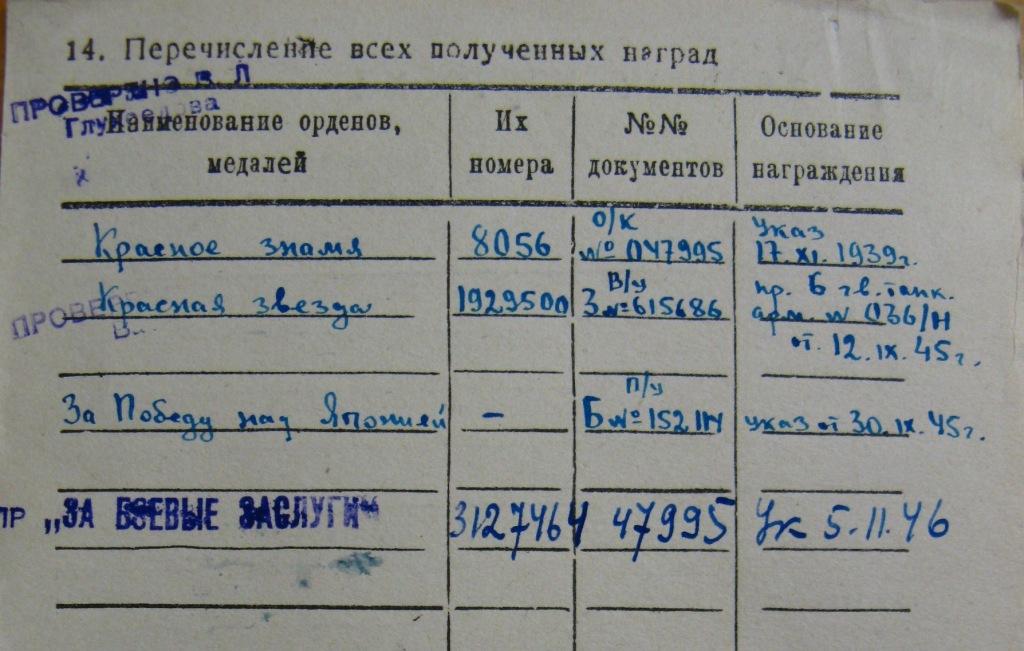 14. Перечисление всех полученных наград
ПРОВЕРЕНО В Л
Наименование орденов, медалей
Их номера
№№ документов
Основание награждения
Красное знамя 8056 О/К № 047995 Указ 17.XI.1939г.
Красная звезда 1929500 В/У З №615686 пр. Б гв. танк. арм. N 036/Н от. 12.IX.45г.
ПРОВЕРЕ
За Победу над Японией - П/У Б №152114 указ от 30.IX.45г.
ПР „ЗА БОЕВЫЕ ЗАСЛУГИ“ 3127464 47995 Ук 5.11.46